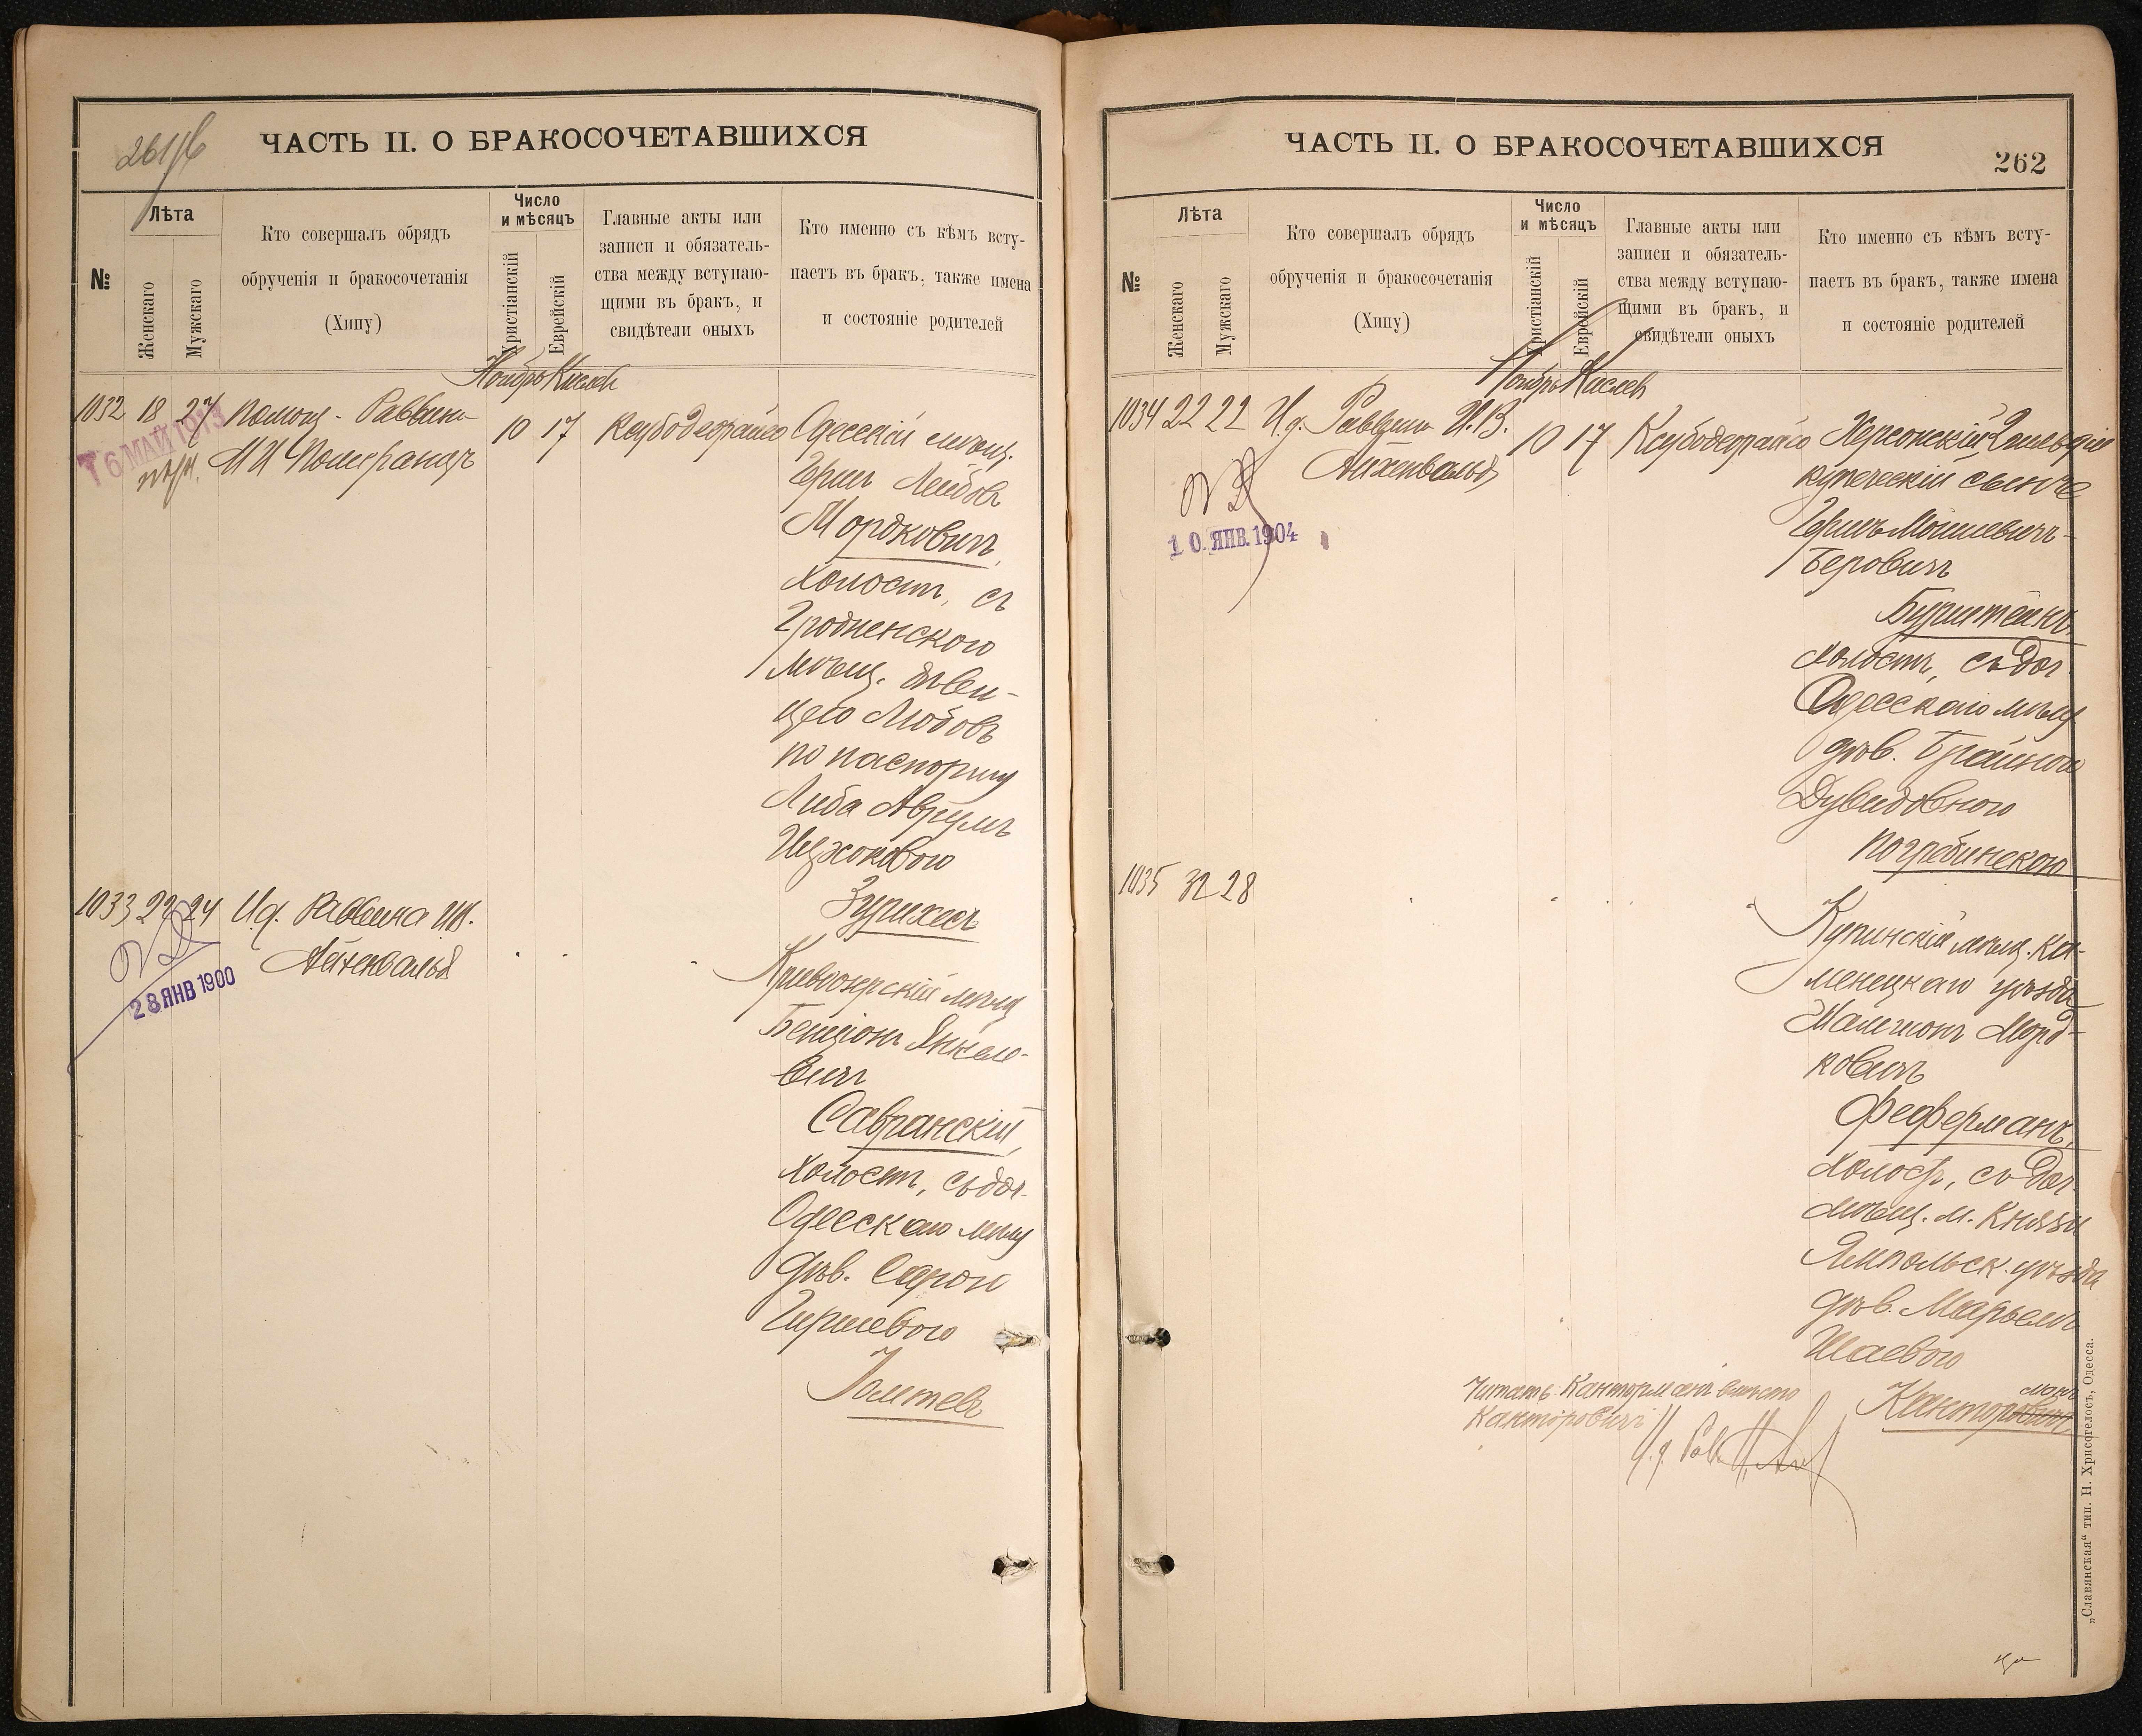 261/б
ЧАСТЬ II. О БРАКОСОЧЕТАВШИХСЯ
№
Лѣта
Женскаго
Мужскаго
Кто совершалъ обрядъ
обрученія и бракосочетанія
(Хипу)
Число
и мѣсяцъ
Христіанскій
Еврейскій
Главные акты или
записи и обязатель-
ства между вступаю-
щими въ бракъ, и
свидѣтели оныхъ
Кто именно съ кѣмъ всту-
паетъ въ бракъ, также имена
и состояніе родителей
Ноябрь Кислевъ
1032 18 27 Помощ. Раввина
М И Померанцъ
16 МАЙ 1913
10 17 Ксубодеорайсо
Одесскій мѣщ.
Герш Лейбов
Мордковичъ,
холостъ, съ
Гродненского
мѣщ. дѣви-
цею Любовь
по паспорту
Либа Аврумъ
Ицковою
Зурихесъ
1033 22 24 И.д. Раввина
Айхенвальд
28 ЯНВ 1900
Кривоозерскій мѣщ
Бенціонъ Янкеле-
вичъ
Савранскій,
холостъ, съ доч.
Одесскаго мѣщ
дѣв. Сарою
Гершевою
Голтевъ
ЧАСТЬ II. О БРАКОСОЧЕТАВШИХСЯ
262
№
Лѣта
Женскаго
Мужскаго
Кто совершалъ обрядъ
обрученія и бракосочетанія
(Хипу)
Число
и мѣсяцъ
Христіанскій
Еврейскій
Главные акты или
записи и обязатель-
ства между вступаю-
щими въ бракъ, и
свидѣтели оныхъ
Кто именно съ кѣмъ всту-
паетъ въ бракъ, также имена
и состояніе родителей
Ноябрь Кислевъ
1034 22 22 И.д. Раввина И.В.
Айхенвальд
10. ЯНВ. 1904
10 17 Ксубодеорайсо
Херсонскій 2 гильдіи
купеческій сынъ
Гершъ Мошиевичъ-
Беровичъ
Бурштейнъ
холостъ, съ доч.
Одесскаго мѣщ
дѣв. Брайною
Дувидовною
Погребинскою
1035 32 28
Купинскій мѣщ. Ка-
менецкаго уѣзда
Шлиомъ Морд-
ковичъ
Феферманъ,
холостъ, съ доч.
мѣщ. м. Князи
Ямпольск. уѣзда
дѣв. Марьемъ
Шаевою
манъ
Канторовичъ
Читать Канторманъ вмѣсто
Канторовичъ
И.д. Рав.
„Славянская“ тип. Н. Хрисогелосъ, Одесса.